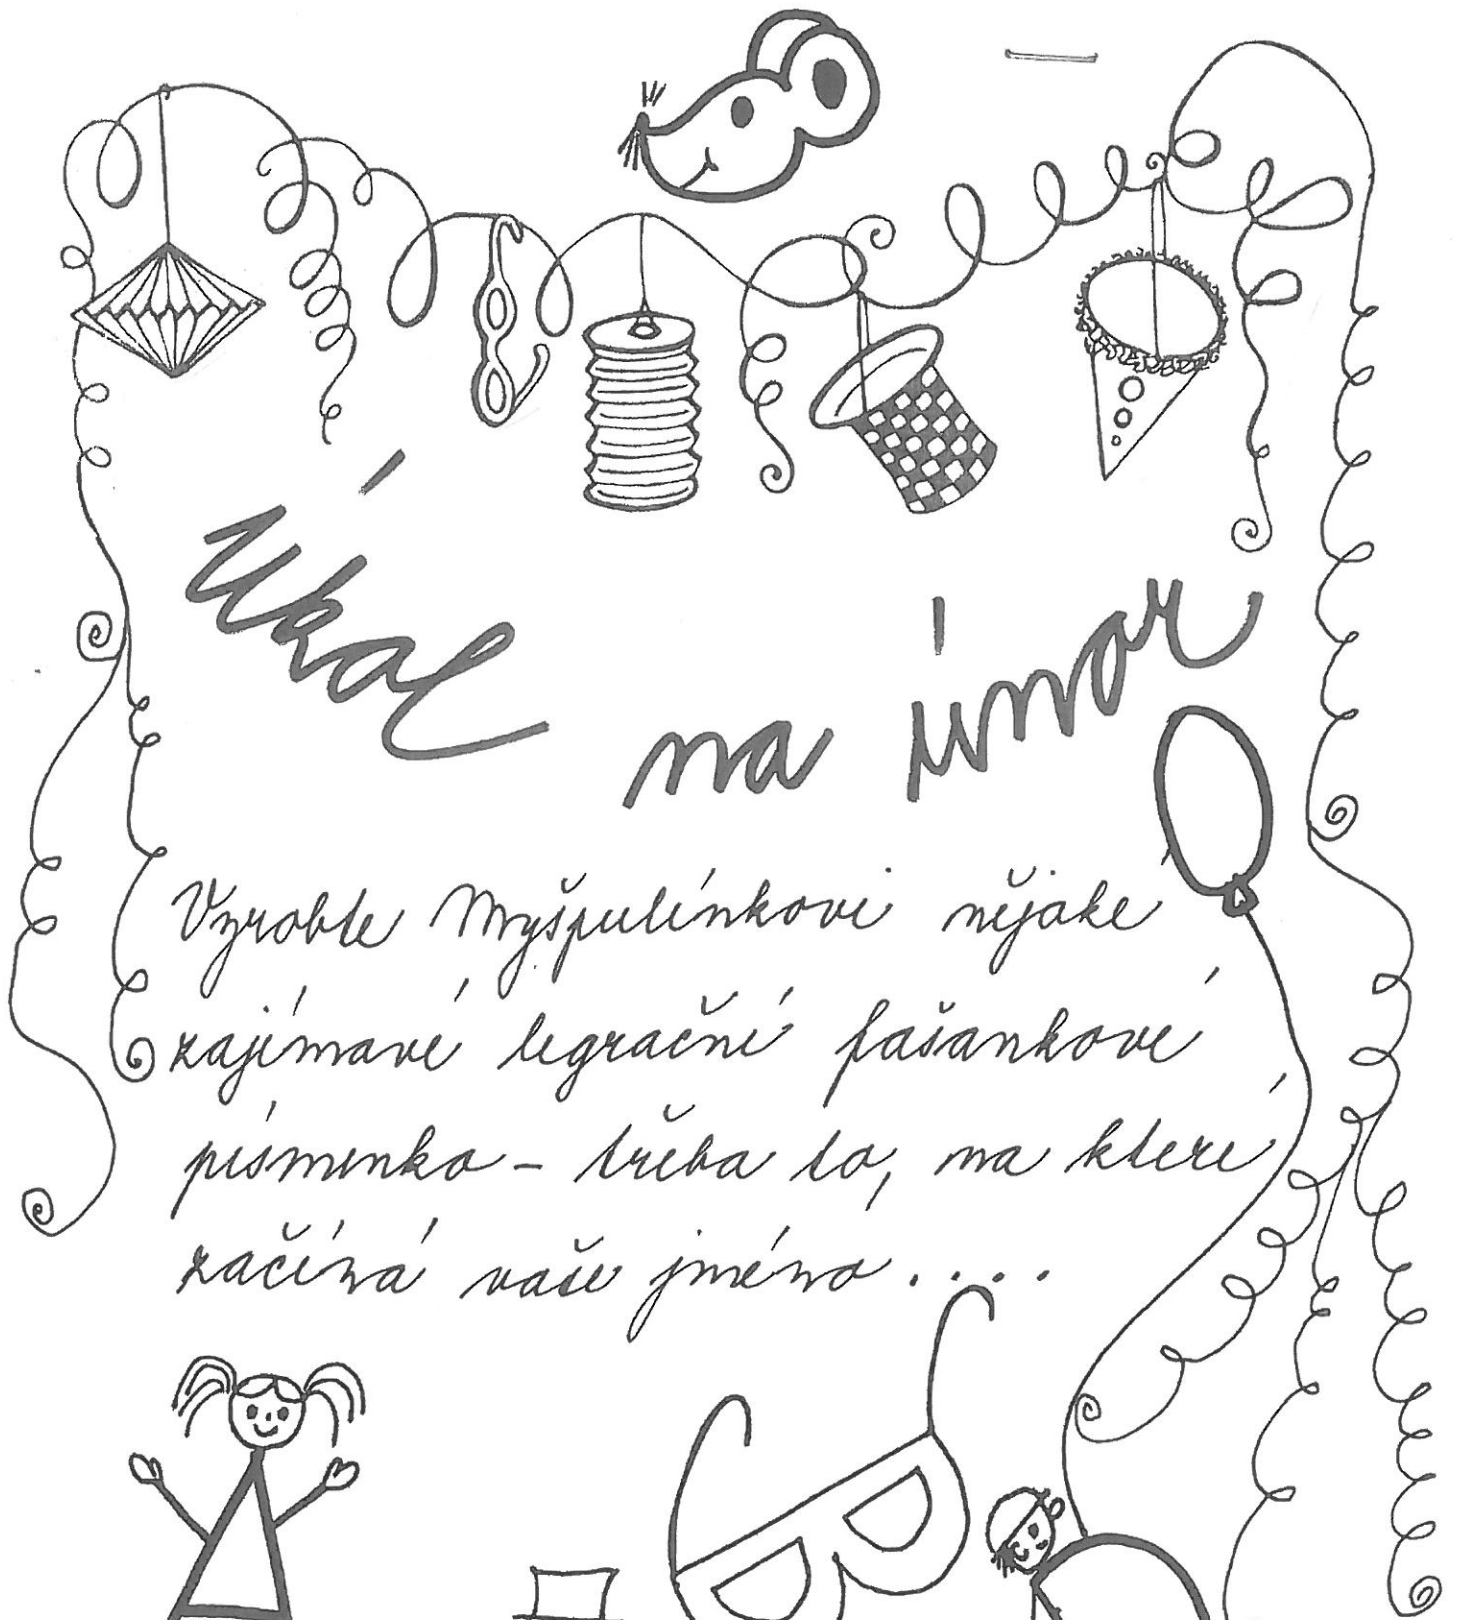 Úkol
na únor
Vyrobte Myšpulínkovi nějaké
zajímavé legrační fašankové
písmenko - třeba to, na které
začíná vaše jméno....